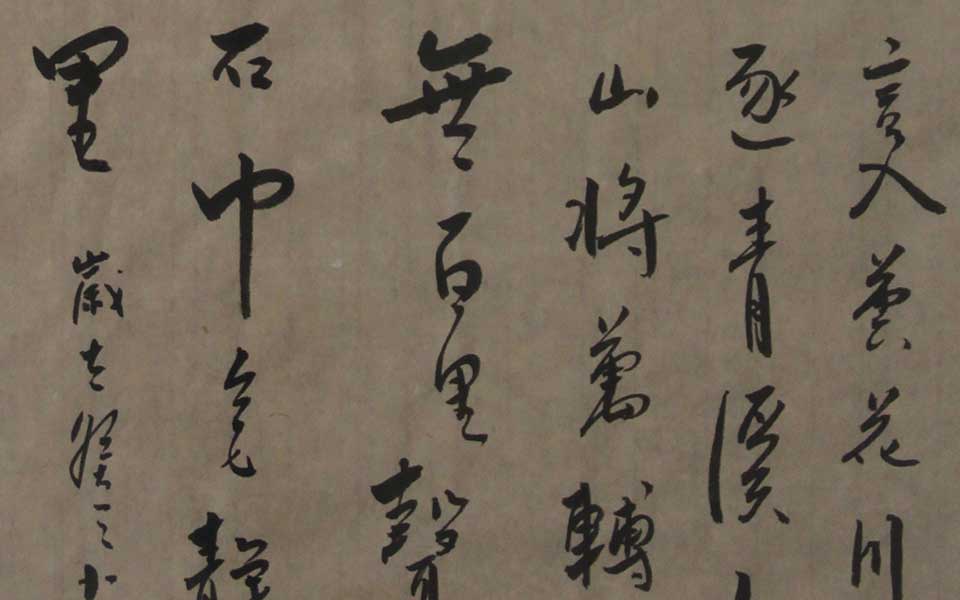 言入黃花川
逐青溪
山將萬轉
無百里聲
石中色靜
里
歲在